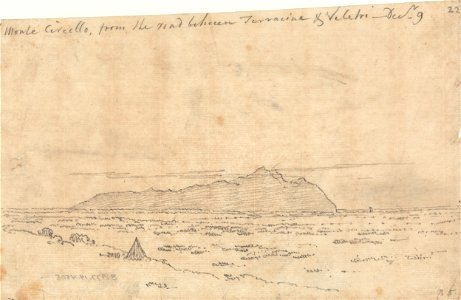 Monte Circello, from the road between Terracina & Veletri Decr 9
22